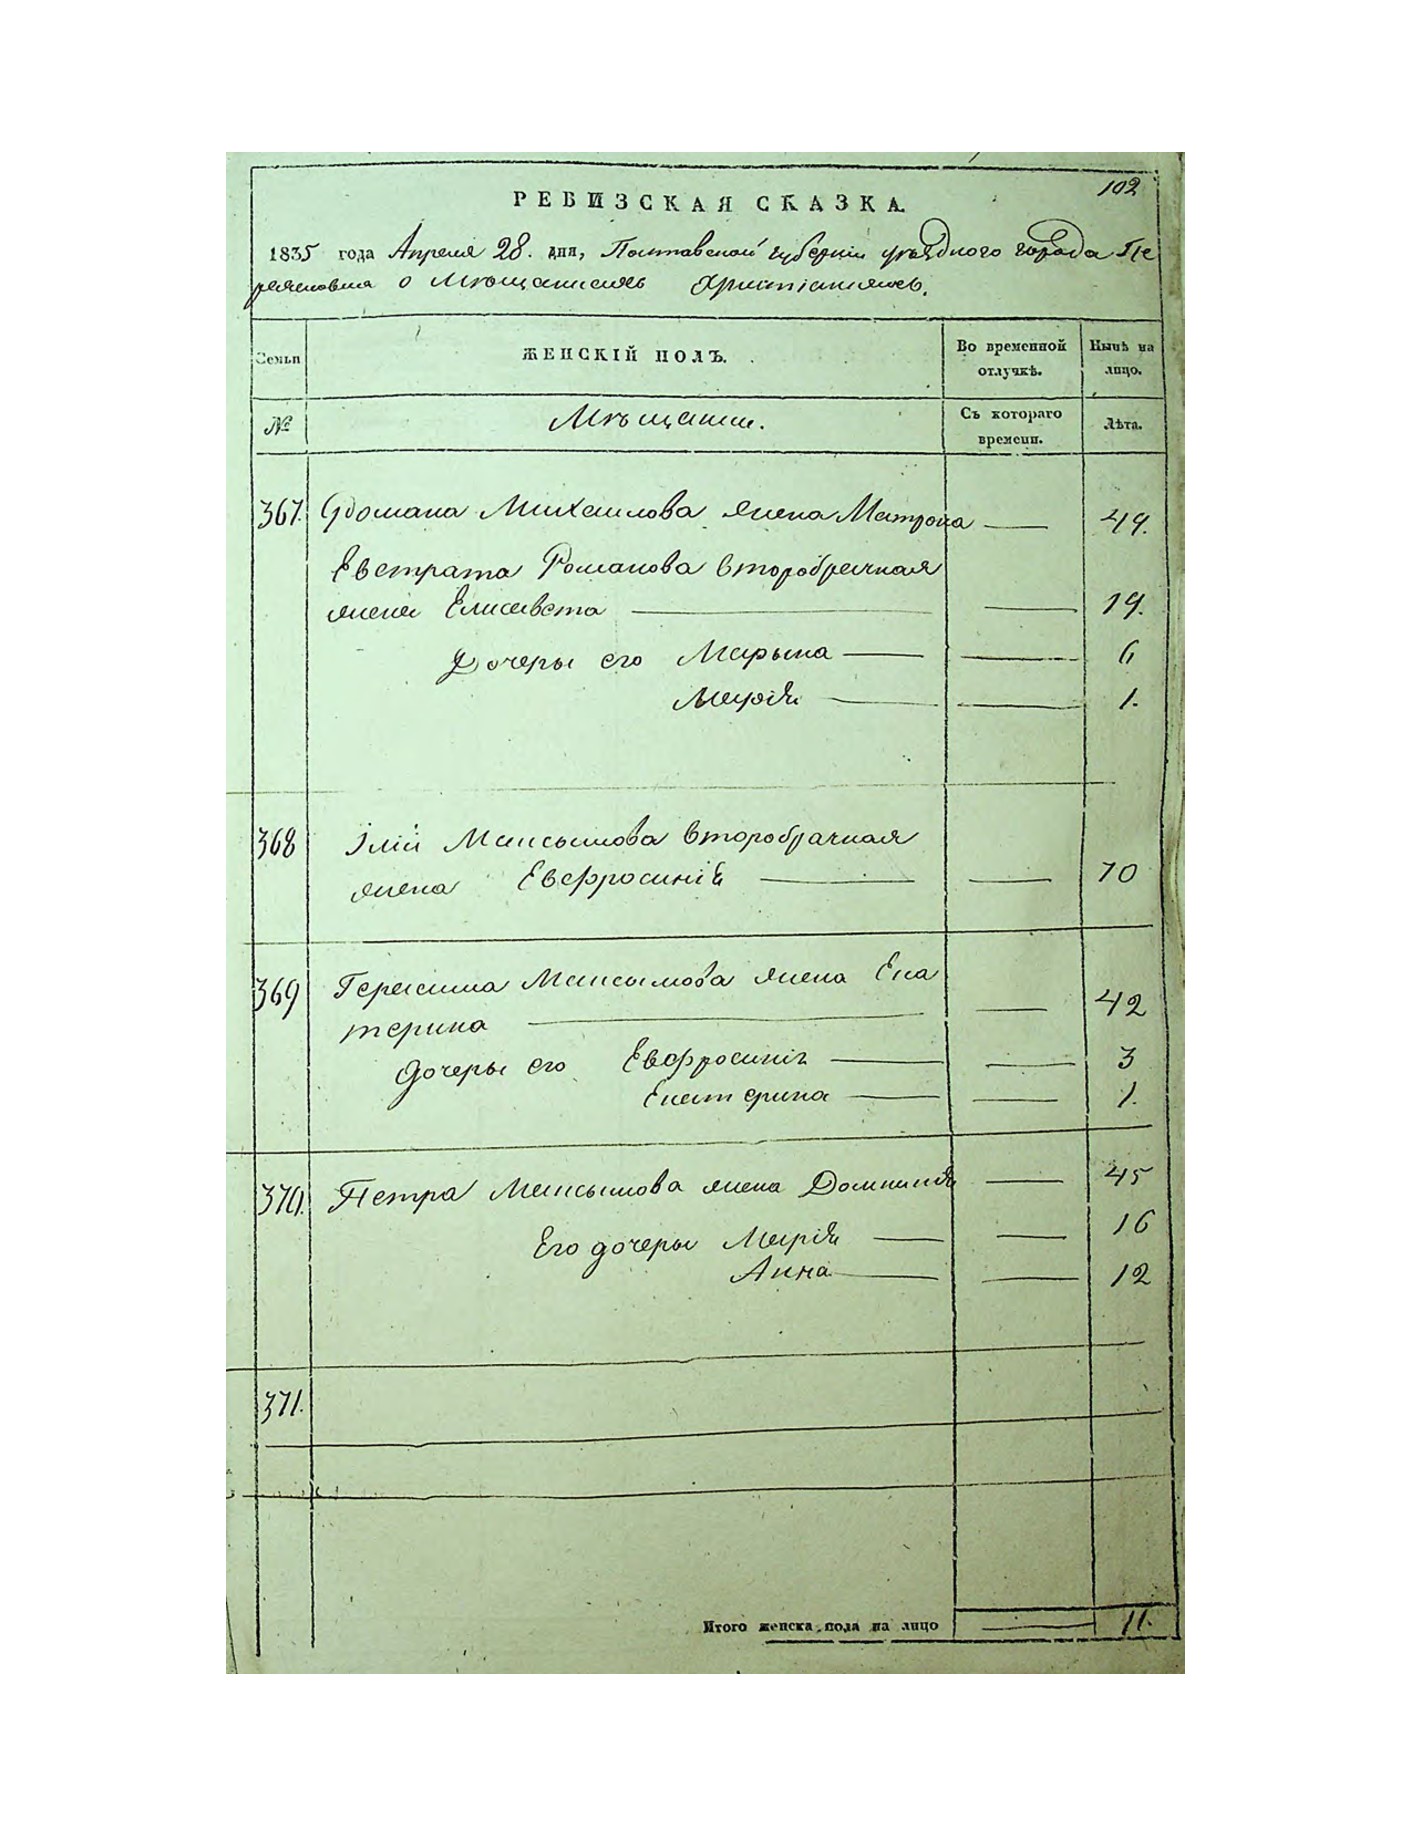 102
РЕВИЗСКАЯ СКАЗКА.
1835 года Апреля 28. дня, Полтавской губерніи уѣзднаго города Пе
реяславля о Мѣщанахъ Христіянахъ.
Семьи
ЖЕНСКІЙ ПОЛЪ.
Во временной отлучкѣ.
Нынѣ на лицо.
№
Мѣщани.
Съ котораго времени.
Лѣта.
367. Романа Михаилова жена Матрона — 49.
Евстрата Романова второбрачная
жена Елисавета — — 19.
Дочеры его Марына — — 6
Марія — — 1.
368 Іліи Максымова второбрачная
жена Евфросинія — — 70
369 Герасима Максымова жена Ека
терина — — 42
дочеры его Евфросинія — — 3
Екатерина — — 1.
370. Петра Максымова жена Домникія — 45
Его дочеры Марія — — 16
Анна — — 12
371.
Итого женска пола на лицо — 11.